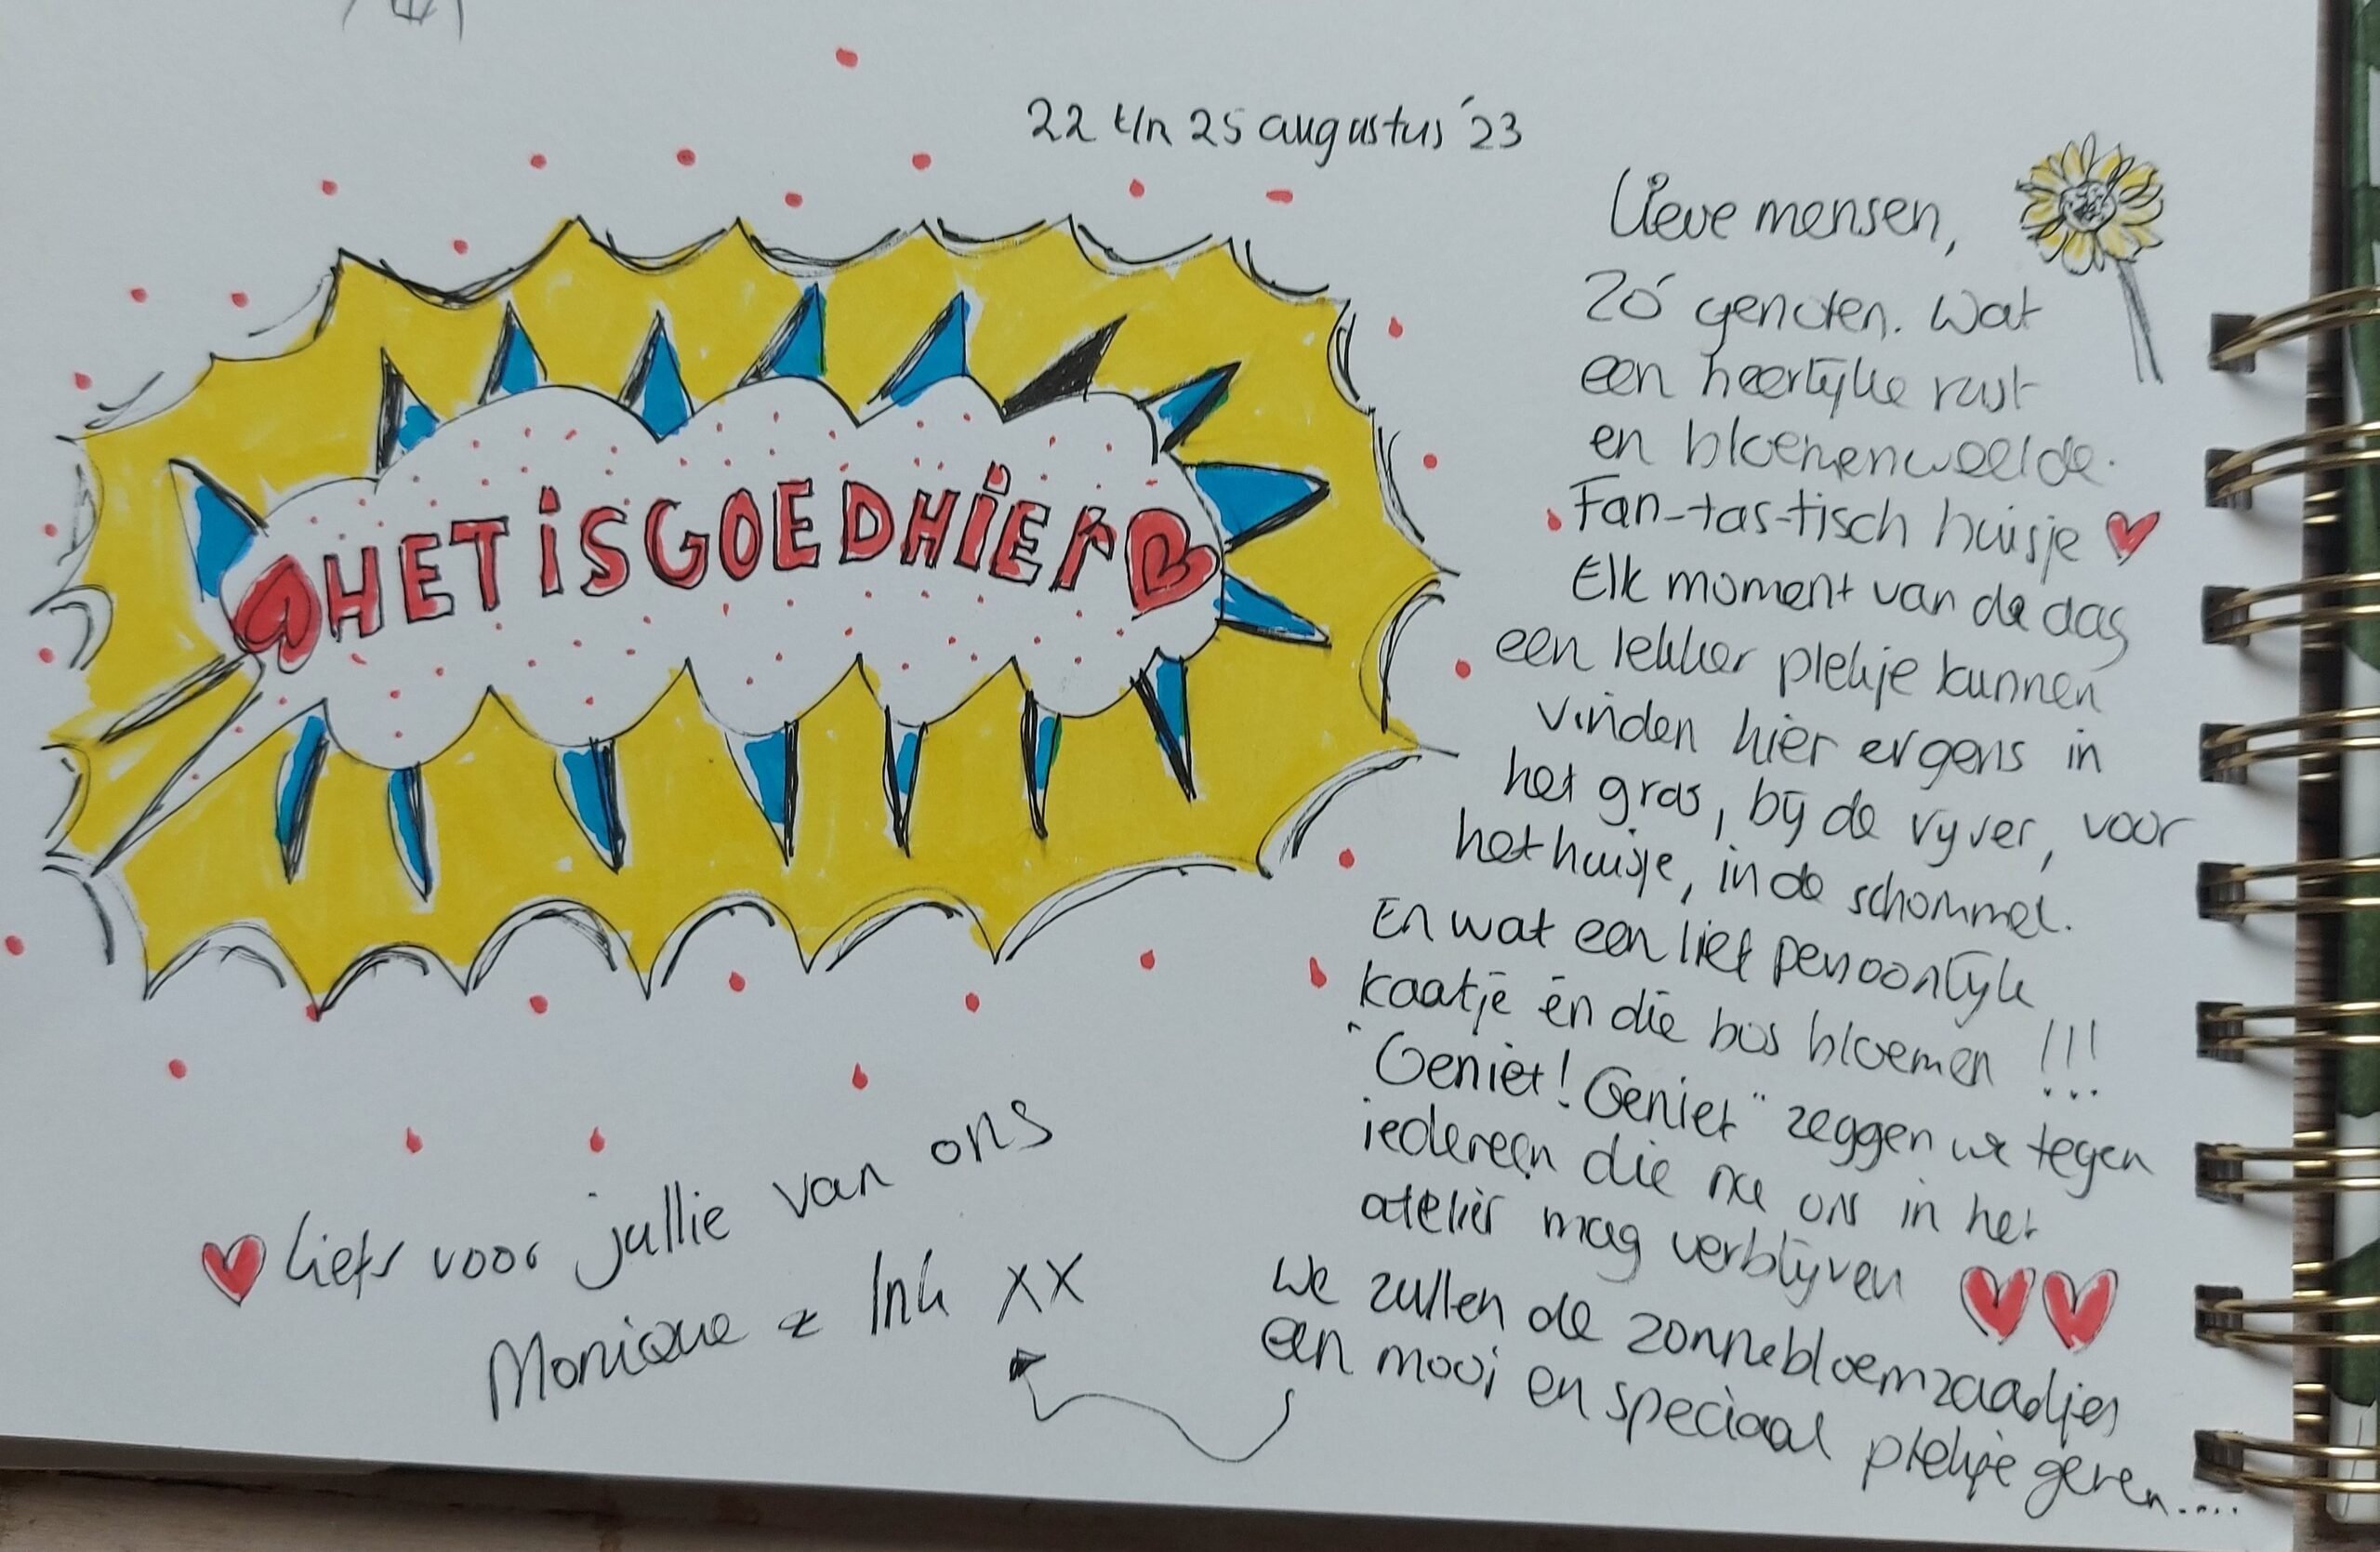 22 t/m 25 augustus '23
HET IS GOED HIER
Lieve mensen,
Zó genoten. Wat
een heerlijke rust
en bloemenweelde.
Fan-tas-tisch huisje
Elk moment van de dag
een lekker plekje kunnen
vinden hier ergens in
het gras, bij de vijver, voor
het huisje, in de schommel.
En wat een lief persoonlijk
kaatje én die bos bloemen !!!
"Geniet! Geniet" zeggen we tegen
iedereen die na ons in het
atelier mag verblijven
We zullen de zonnebloemzaadjes
een mooi en speciaal plekje geven....
Liefs voor jullie van ons
Monique & XX